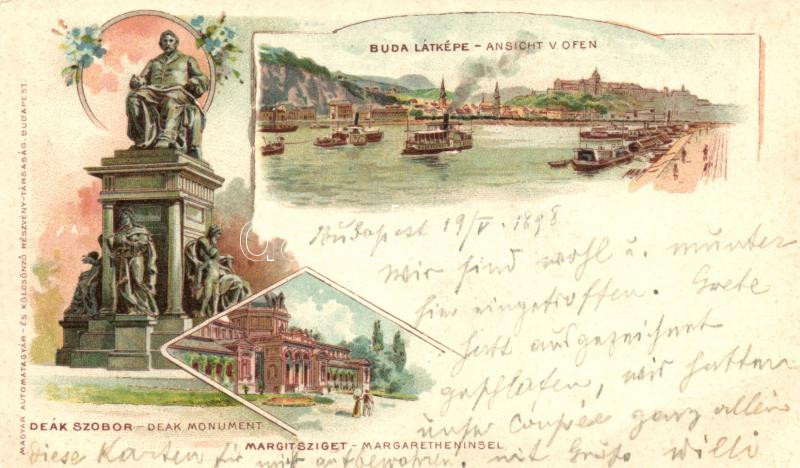 BUDA LÁTKÉPE - ANSICHT V. OFEN
MAGYAR AUTOMATAGYÁR- ÉS KÖLCSÖNZŐ RÉSZVÉNY-TÁRSASÁG, BUDAPEST.
Budapest 19/V. 1898
Wir sind wohl u. munter
hier eingetroffen. Grete
hatt ausgezeichnet
geschlafen, wir hatten
unser Coupée ganz allein
DEÁK SZOBOR - DEAK MONUMENT
MARGITSZIGET - MARGARETHENINSEL
diese Karten für mich aufbewahren. mit Gruß Willi